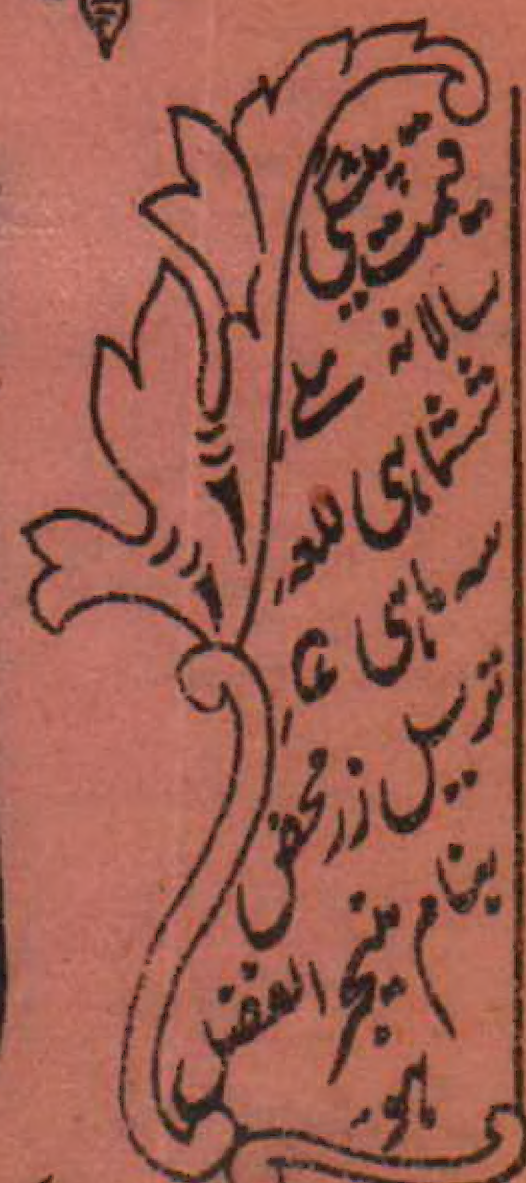 قیمت پیشگی
سالانہ
ششماہی للعہ
سہ ماہی
ترسیل زر محض
بنام منیجر الفضل
ہو